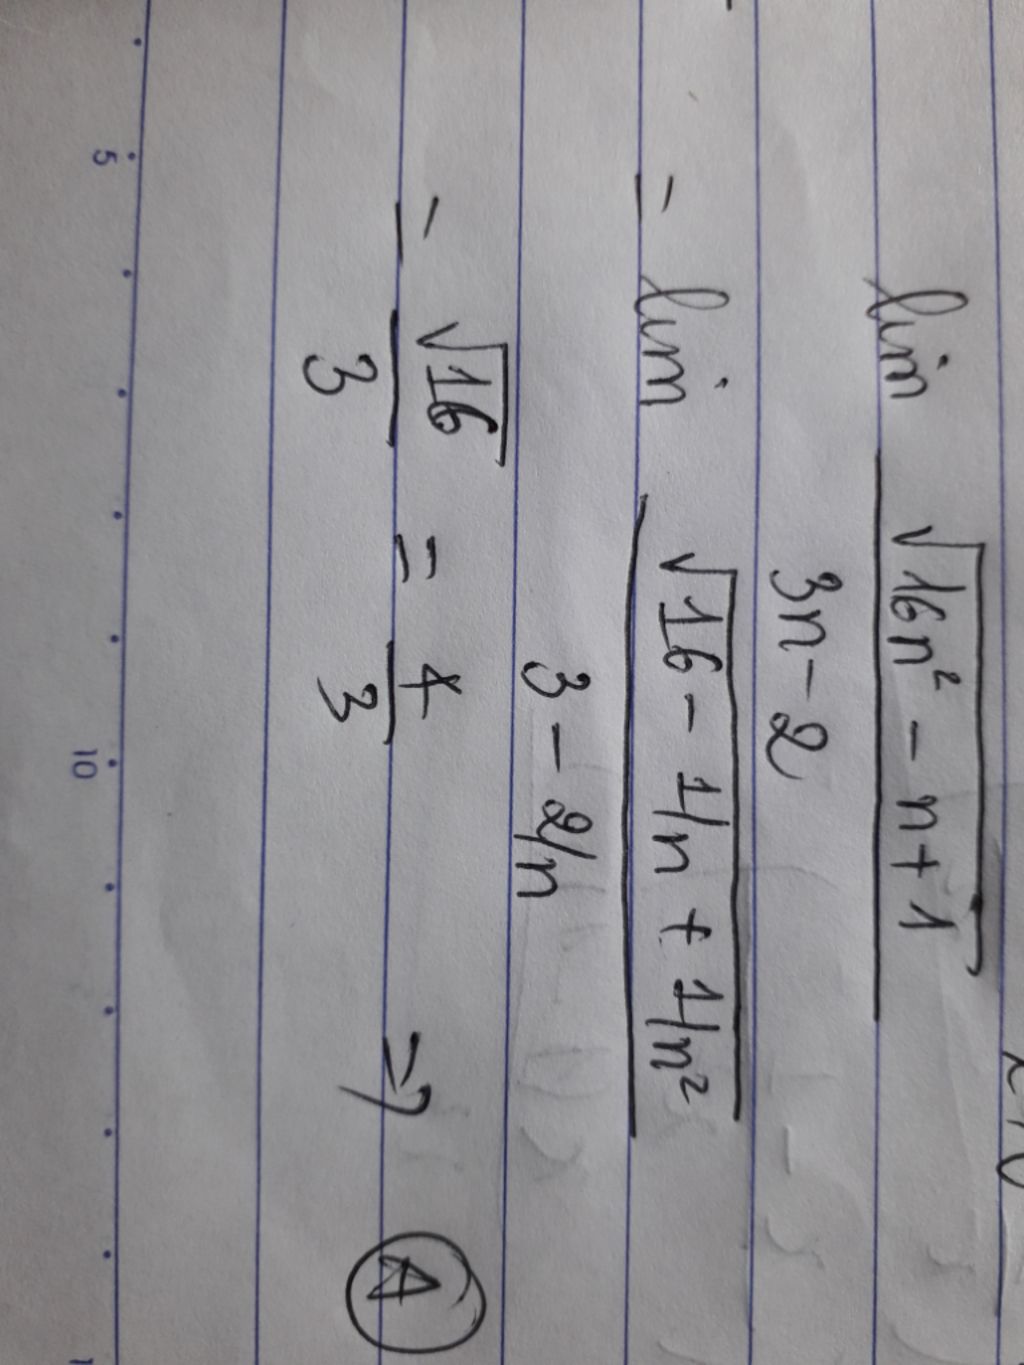 lim √(16n² - n + 1) / (3n - 2)
= lim √(16 - 1/n + 1/n²) / (3 - 2/n)
= √16 / 3 = 4 / 3 => A
5 10